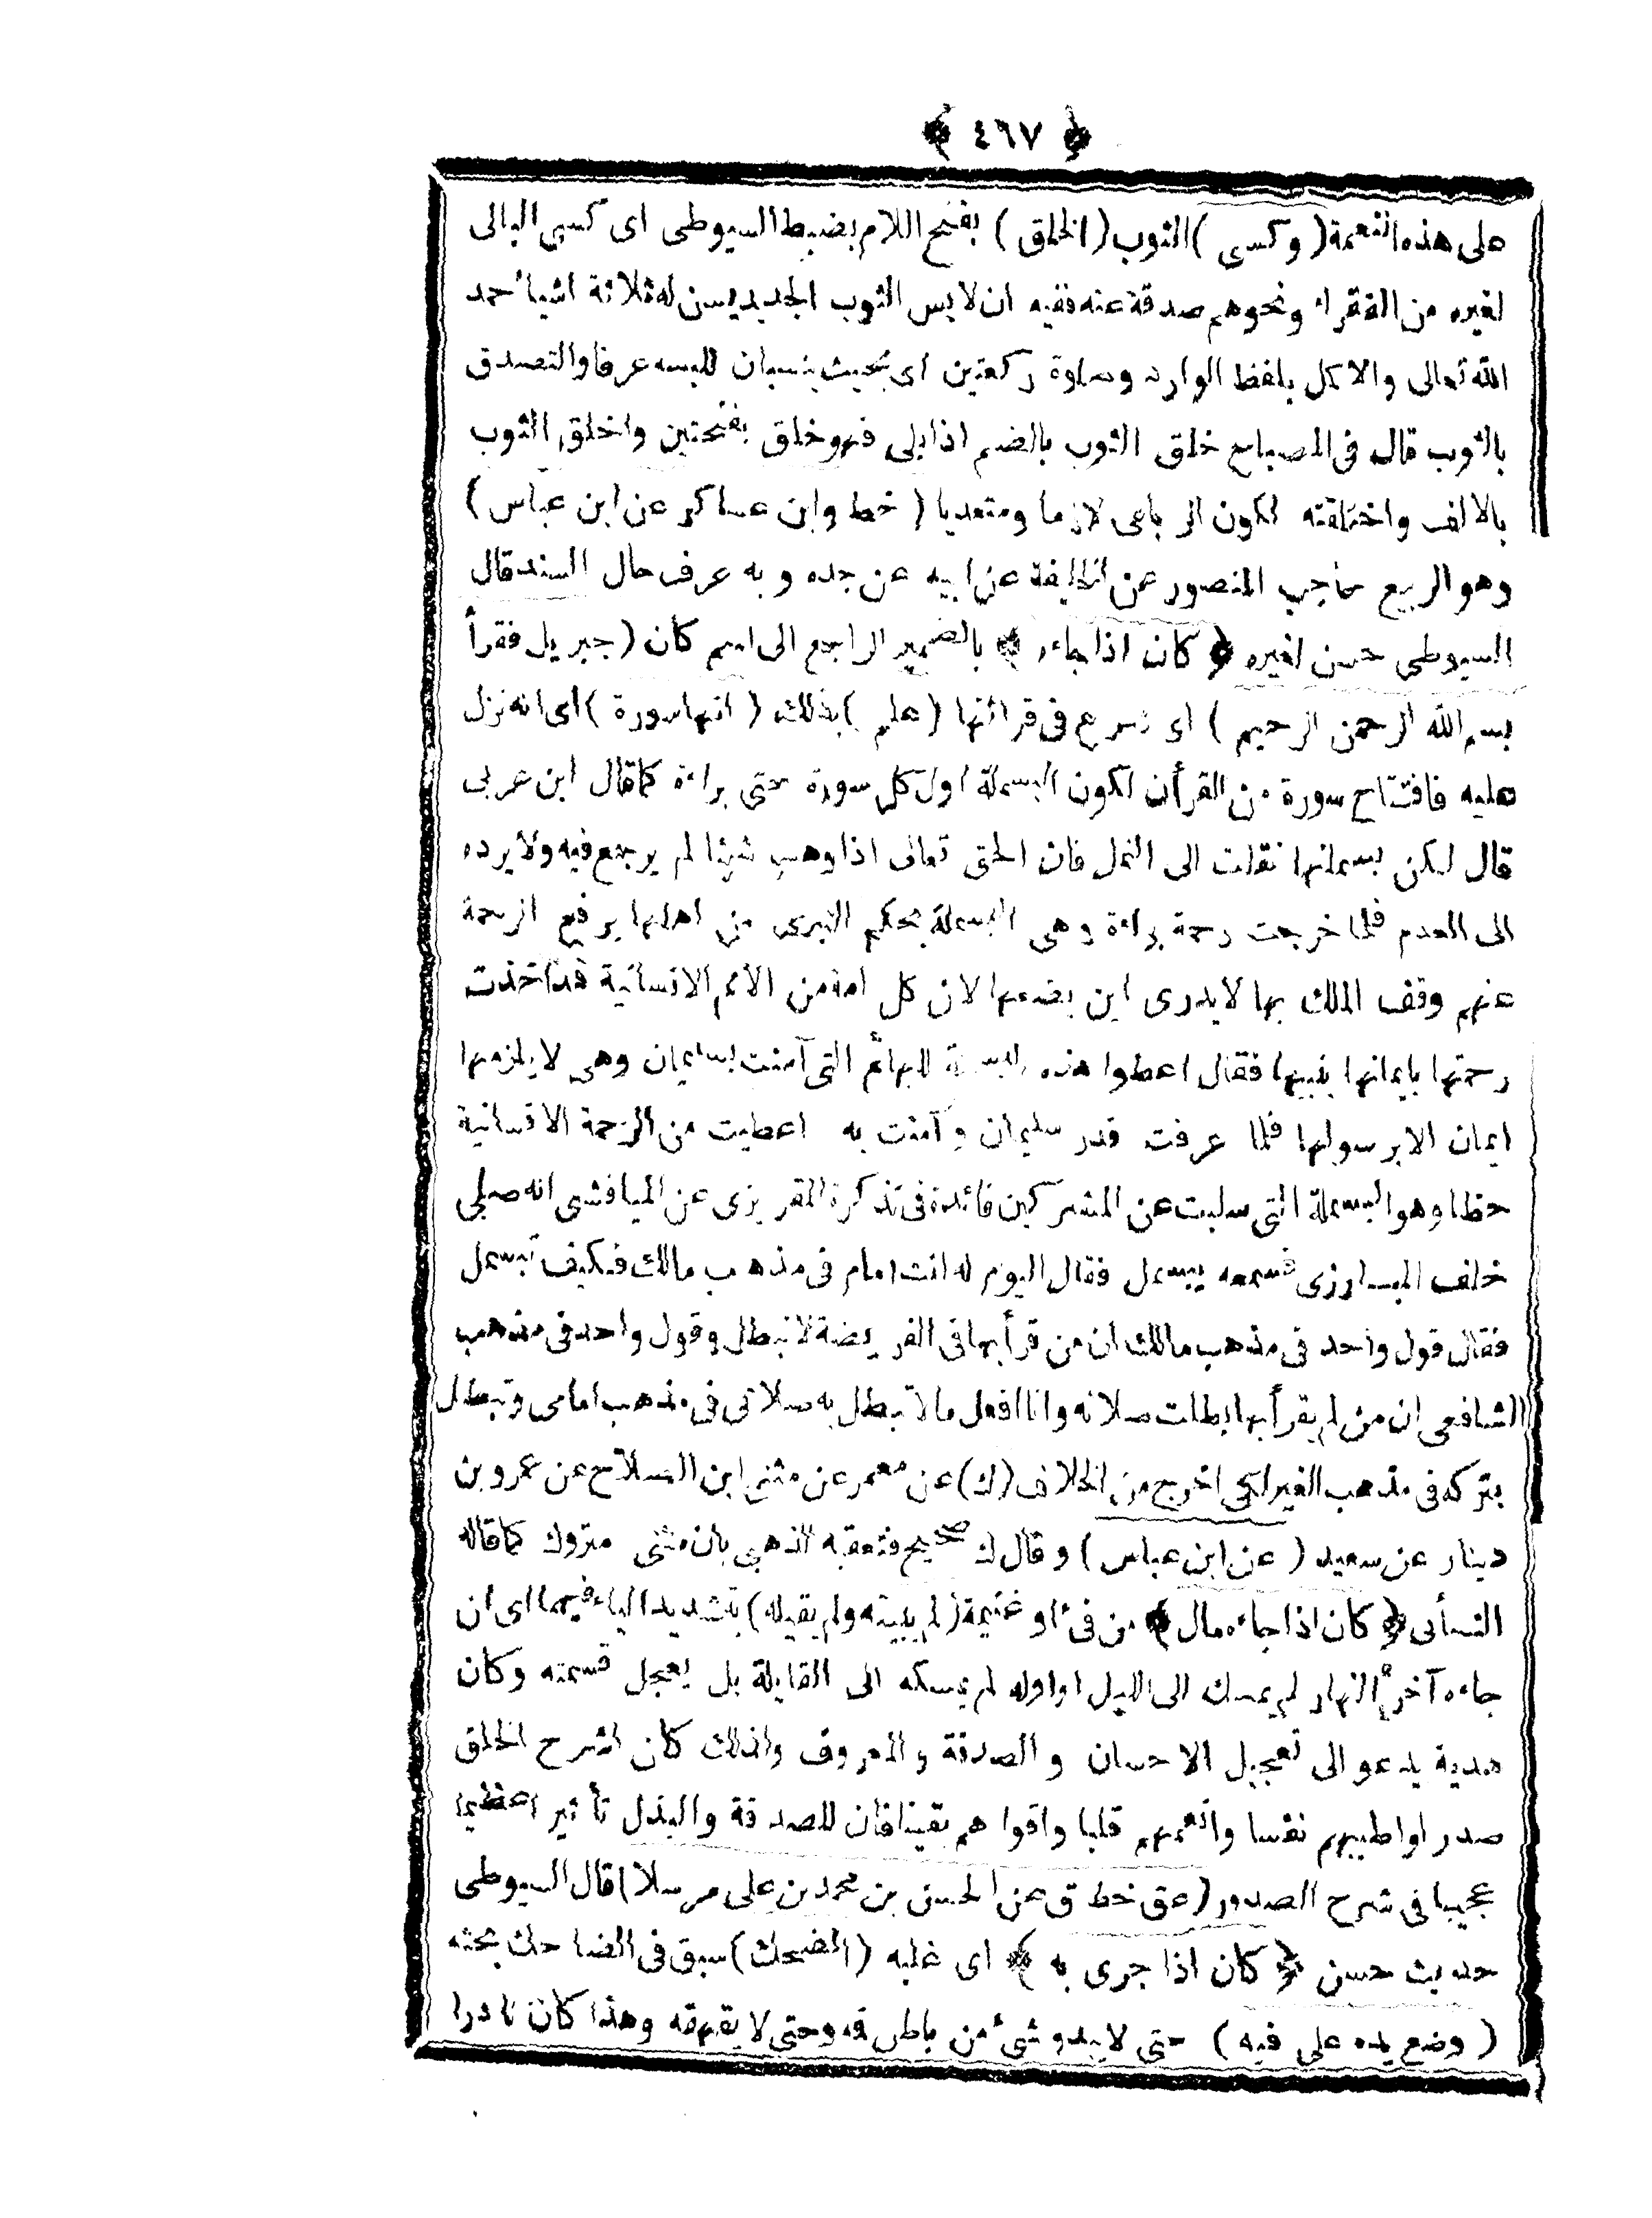 ﴿ ٤٦٧ ﴾
على هذه النعمة (وكسى) الثوب (الخلق) بفتح اللام بضبط السيوطى اى كسى البالى
لغيره من الفقراء ونحوهم صدقة عنه ففيه ان لابس الثوب الجديد يسن له ثلاثة اشياء حمد
الله تعالى والاكمل بلفظ الوارد وصلوة ركعتين اى بحيث ينسبان للبسه عرفا والتصدق
بالثوب قال فى المصباح خلق الثوب بالضم اذا بلى فهو خلق بفتحتين واخلق الثوب
بالالف واخلقته لكون الرباعى لازما ومتعديا (خط وابن عساكر عن ابن عباس)
وهو الربيع حاجب المنصور عن الخليفة عن ابيه عن جده وبه عرف حال السند قال
السيوطى حسن لغيره ﴿ كان اذا جاءه ﴾ بالضمير الراجع الى اسم كان (جبريل فقرأ
بسم الله الرحمن الرحيم) اى شرع فى قرائتها (علم) بذلك (انها سورة) اى انه نزل
عليه فافتتاح سورة من القرأن لكون البسملة اول كل سورة حتى براءة كما قال ابن عربى
قال لكن بسملتها نقلت الى النمل فان الحق تعالى اذا وهب شيئا لم يرجع فيه ولا يرده
الى العدم فلما خرجت رحمة براءة وهى البسملة بحكم التبرى من اهلها برفع الرحمة
عنهم وقف الملك بها لايدرى اين يضعها لان كل امة من الأمم الانسانية قد اخذت
رحمتها بايمانها بنبيها فقال اعطوا هذه البسملة للبهائم التى آمنت بسليمان وهى لايلزمها
ايمان الا برسولها فلما عرفت قدر سليمان وآمنت به اعطيت من الرحمة الانسانية
حظا وهو البسملة التى سلبت عن المشركين فائدة فى تذكرة المقريزى عن الميافشى انه صلى
خلف المــازرى فسمعه يبسمل فقال اليوم له انت امام فى مذهب مالك فكيف تبسمل
فقال قول واحد فى مذهب مالك ان من قرأ بها فى الفريضة لا تبطل وقول واحد فى مذهب
الشافعى ان من لم يقرأ بها بطلت صلاته وانا افعل مالا تبطل به صلاتى فى مذهب امامى وتبطل
بتركه فى مذهب الغير لكى اخرج من الخلاف (ك) عن معمر عن مثنى ابن الصلاح عن عمرو بن
دينار عن سعيد (عن ابن عباس) وقال ك صحيح فتعقبه الذهبى بان مثنى متروك كما قاله
النسأى ﴿ كان اذا جاءه مال ﴾ من فئ او غنيمة (لم يبيته ولم يقيله) بتشديد الياء فيهما اى ان
جاءه آخر النهار لم يمسك الى الليل او اوله لم يمسكه الى القايلة بل يعجل قسمته وكان
هدية يدعو الى تعجيل الاحسان والصدقة والمعروف ولذلك كان اشرح الخلق
صدرا واطيبهم نفسا وانعمهم قلبا واقواهم يقينا فان للصدقة والبذل تأثيرا عظيما
عجيبا فى شرح الصدور (عق خط ق عن الحسن بن محمد بن على مرسلا) قال السيوطى
حديث حسن ﴿ كان اذا جرى به ﴾ اى غلبه (الضحك) سبق فى الضاحك بحثه
(وضع يده على فيه) حتى لايبدو شئ من باطن فه وحتى لايقهقه وهذا كان نادرا